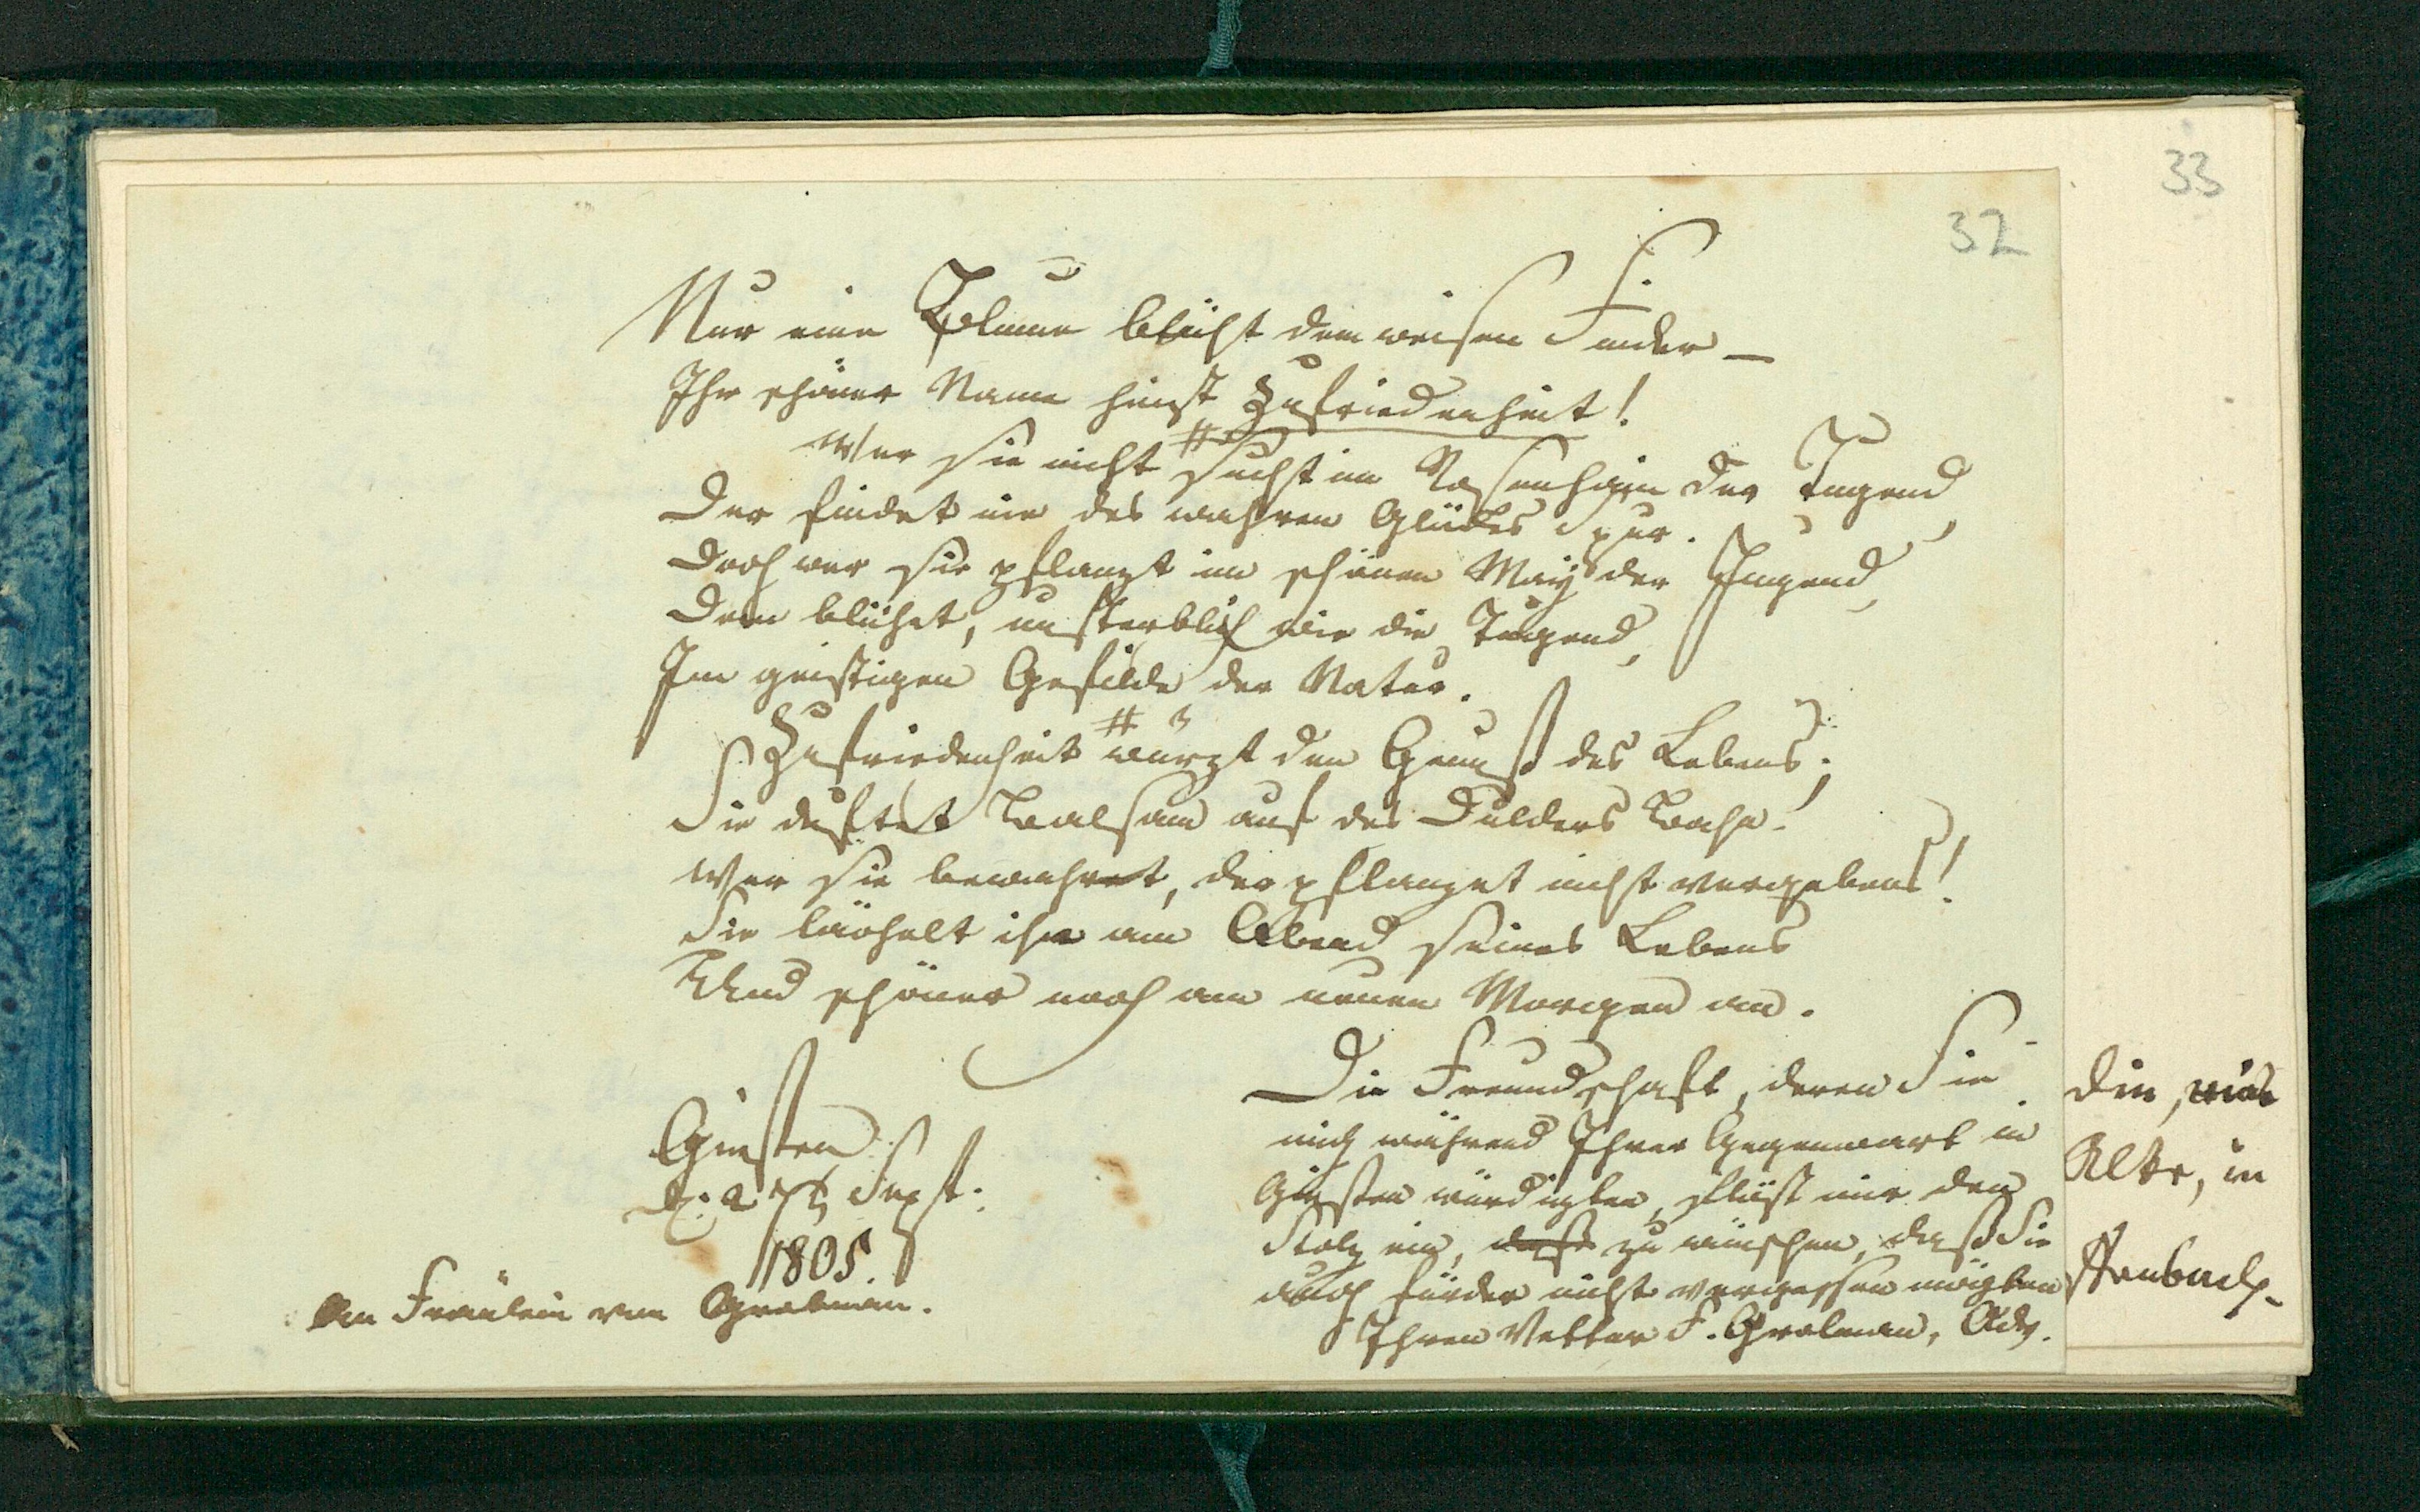 33
32
Nur eine Blume blüht dem weisen Finder –
Ihr schöner Name heist Zufriedenheit!
#
Wer sie nicht sucht im Rosenhain der Tugend,
Der findet nie des wahren Glückes Spur.
Doch wer sie pflanzt im schönen May der Jugend,
Dem blühet, unsterblich wie die Tugend,
Im geistigen Gefilde der Natur.
#
Zufriedenheit würzt den Genuß des Lebens;
Sie duftet Balsam auf des Dulders Bahn.
Wer sie bewahret, der pflanzet nicht vergebens!
Sie lächelt ihn am Abend seines Lebens
Und schöner noch am neuen Morgen an.
Giesten
d. 27 Sept.
1805.
An Fräulein von Grolman.
Die Freundschaft, deren Sie
mich während Ihrer Gegenwart in
Giesten würdigten, flöst mir den
Stolz ein, zu wünschen, daß Sie
auch fürder nicht vergessen mögten
Ihren Vetter F. Grolman, Adv.
Die, wie
Alte, in